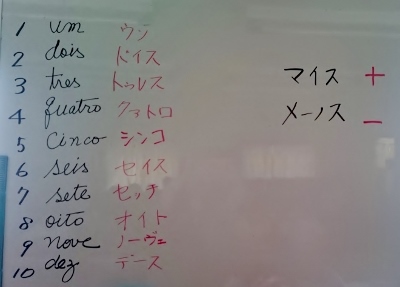 1 um ウン
2 dois ドイス
3 tres トゥレス
4 quatro クヮトロ
5 cinco シンコ
6 seis セイス
7 sete セッチ
8 oito オイト
9 nove ノーヴェ
10 dez デース
マイス +
メーノス −